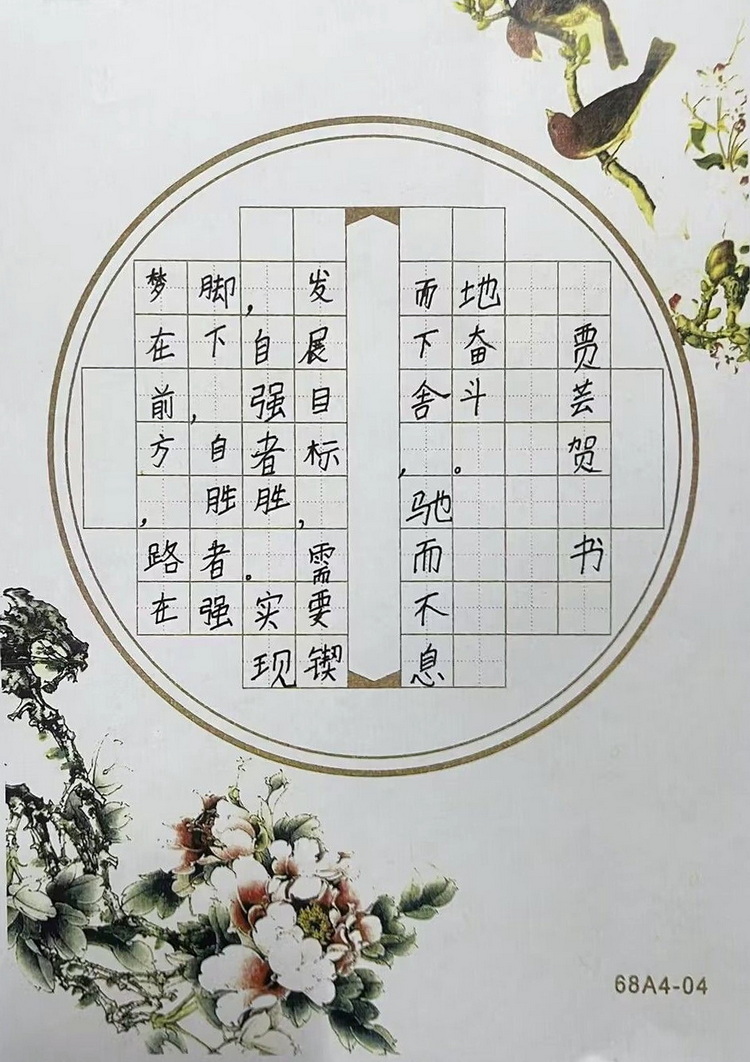 梦在前方，路在
脚下，自胜者强
，自强者胜。实现
发展目标，需要锲
而下舍，驰而不息
地奋斗。
贾芸贺书
68A4-04